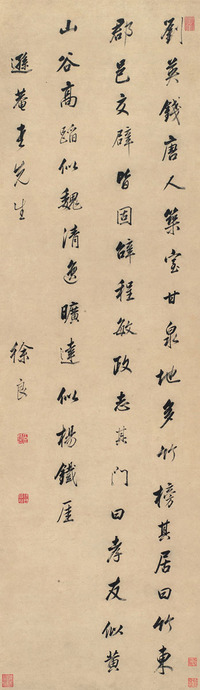 劉英錢唐人築室甘泉地多竹榜其居曰竹東
郡邑交辟皆固辭程敏政志其門曰孝友似黃
山谷高蹈似魏清逸曠達似楊鐵厓
遜菴老先生
徐良